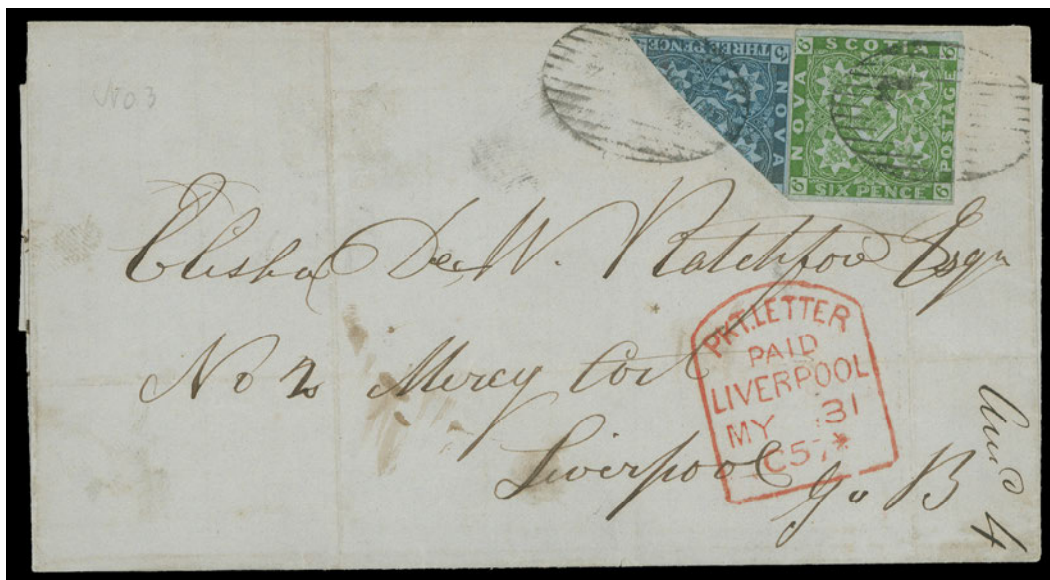 No 3
THREE PENCE
NOVA
SCOTIA
NOVA
POSTAGE
SIX PENCE
Elisha De W. Ratchford Esqr
No 2 Mercy Cort
Liverpool
G. B
PKT. LETTER
PAID
LIVERPOOL
MY 31
C57*